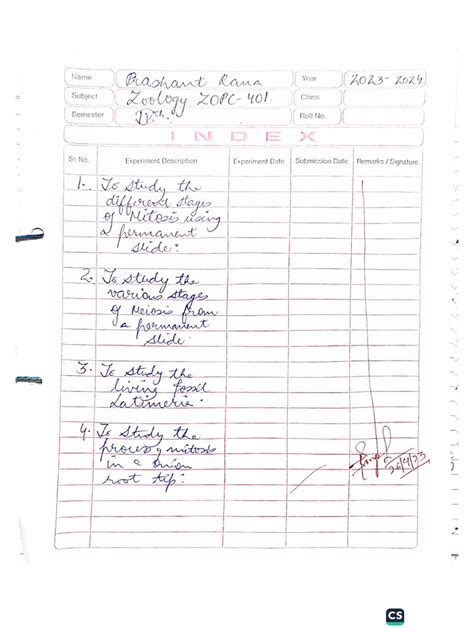 Name Prashant Rana Year 2023-2024
Subject Zoology ZOPC-401. Class
Semester IVth. Roll No.
INDEX
Sr. No. Experiment Description Experiment Date Submission Date Remarks / Signature
1. To study the
different stages
of Mitosis using
a permanent
slide.
2. To study the
various stages
of Meiosis from
a permanent
slide.
3. To study the
living fossil
Latimeria.
4. To study the
process of mitosis
in a onion
root tip.
26/4/23
CS